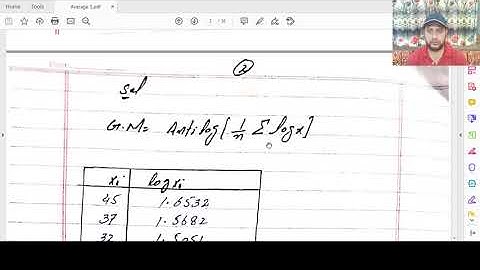 Home Tools Average 3.pdf
②
Sol
G.M = Antilog[1/n Σ logx]
xi logxi
45 1.6532
37 1.5682